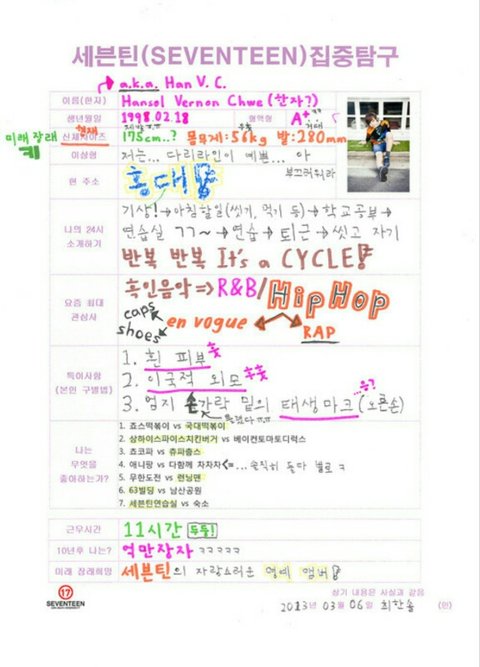 세븐틴(SEVENTEEN)집중탐구
a.k.a. Han V. C.
이름(한자) Hansol Vernon Chwe (한자?)
생년월일 1998.02.18 혈액형 A+
미래 장래 키 신체사이즈 현재 175cm..? 몸무게:56kg 발:280mm
이상형 저는... 다리라인이 예쁘... 아 부끄러워라
현 주소 홍대!
나의 24시 소개하기 기상! → 아침할일(씻기, 먹기 등) → 학교공부 →
연습실 ㄱㄱ~ → 연습 → 퇴근 → 씻고 자기
반복 반복 It's a CYCLE!
요즘 최대 관심사 흑인음악 => R&B/HipHop
caps shoes en vogue RAP
특이사항 (본인 구별법) 1. 흰 피부
2. 이국적 외모
3. 엄지 손가락 밑의 태생마크 (오른손)
틀렸다 ㅠㅠ
나는 무엇을 좋아하는가?
1. 죠스떡볶이 vs 국대떡볶이
2. 상하이스파이스치킨버거 vs 베이컨토마토디럭스
3. 쵸코파 vs 츄파춥스
4. 애니팡 vs 다함께 차차차 <= ... 솔직히 둘다 별로 ㅋ
5. 무한도전 vs 런닝맨
6. 63빌딩 vs 남산공원
7. 세븐틴연습실 vs 숙소
근무시간 11시간 두둥!
10년후 나는? 억만장자 ㅋㅋㅋㅋㅋ
미래 장래희망 세븐틴의 자랑스러운 명예 맴버!
상기 내용은 사실과 같음
17
SEVENTEEN
2013년 03월 06일 최한솔 (인)